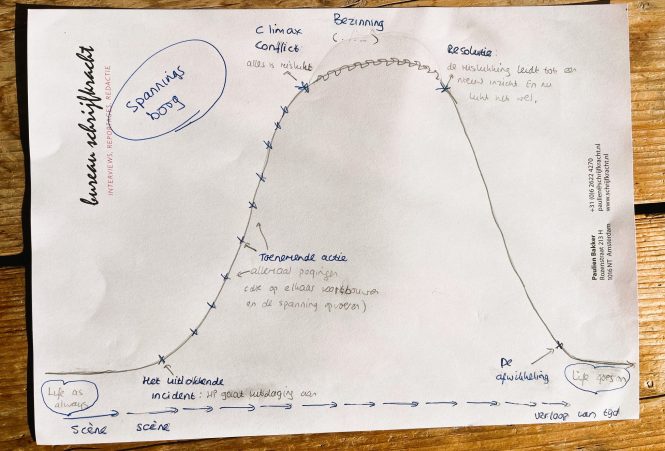 bureau schrijfkracht
INTERVIEWS, REPORTAGES, REDACTIE
Spannings
boog
Climax
Conflict
alles is mislukt
Bezinning
(.....)
Resolutie:
de mislukking leidt tot een
nieuw inzicht. En nu
lukt het wel.
Toenemende actie
allemaal pogingen
(die op elkaar voortbouwen
en de spanning opvoeren)
Het uitlokkende
incident: HP gaat uitdaging aan
De
afwikkeling
Life as
always
Life goes on
Scène
scène
verloop van tijd
Paulien Bakker
Rozenstraat 213 H
1016 NT Amsterdam
+31 (0)6 2622 4270
paulien@schrijfkracht.nl
www.schrijfkracht.nl